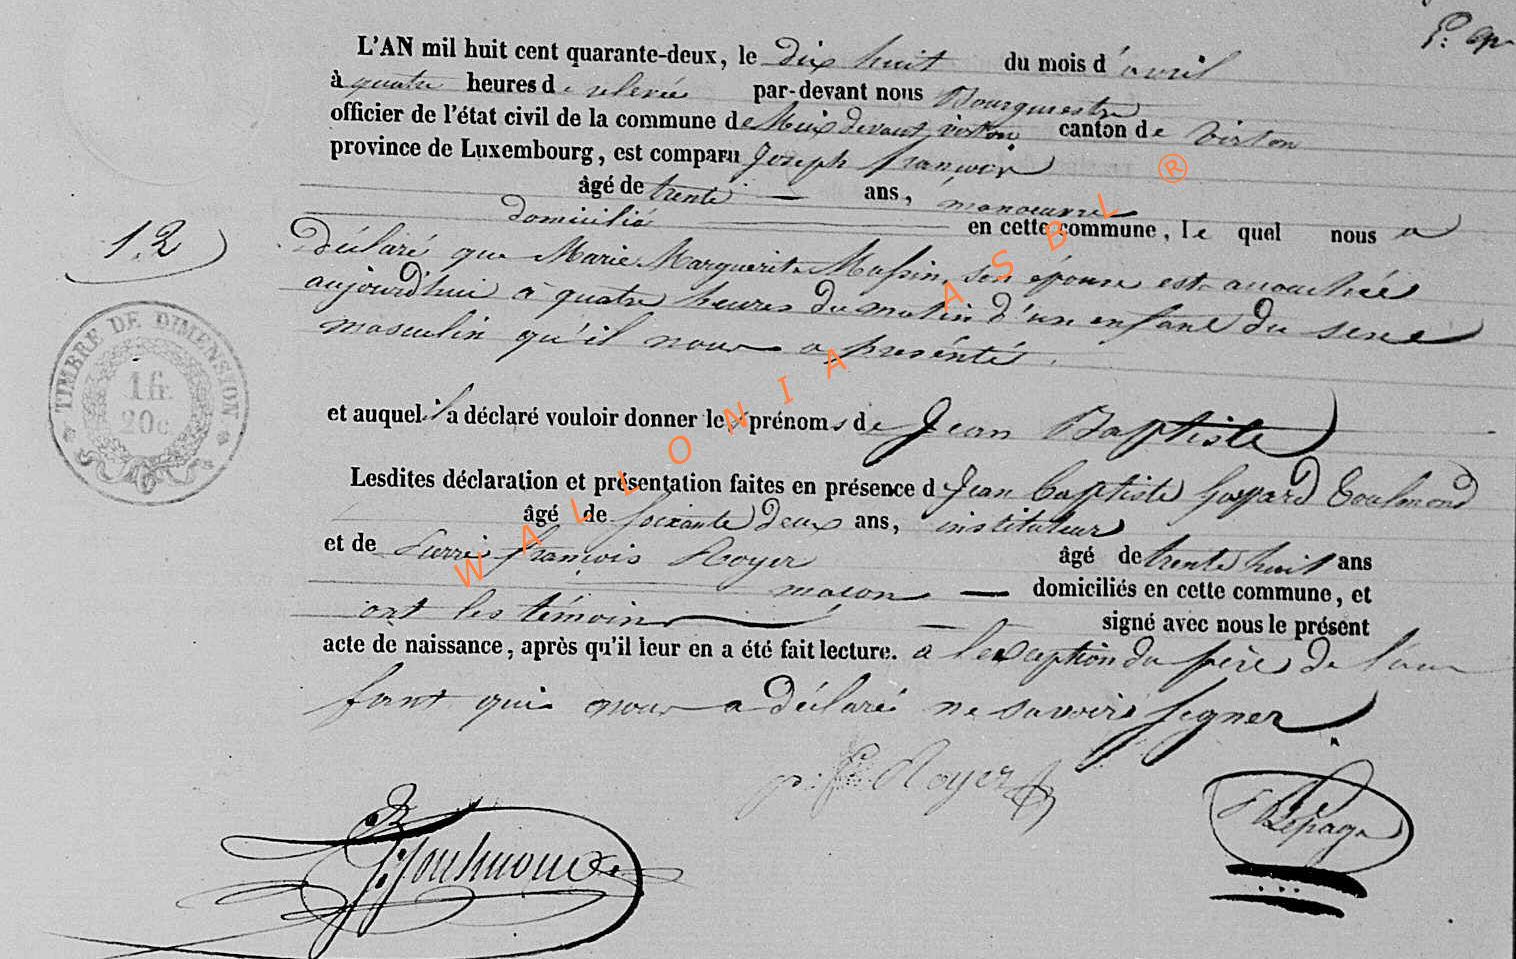 L'AN mil huit cent quarante-deux, le dix huit du mois d'avril
à quatre heures de relevée par-devant nous Bourgmestre
officier de l'état civil de la commune de Meix devant virton canton de Virton
province de Luxembourg, est comparu Joseph françois
âgé de trente ans, manoeuvre
domicilié en cette commune, le quel nous a
12
déclaré que Marie Marguerite Massin, son épouse est accouchée
aujourd'hui à quatre heures du matin d'un enfant du sexe
masculin qu'il nous a présenté.
TIMBRE DE DIMENSION
1 fr.
20 c.
et auquel il a déclaré vouloir donner les prénoms de Jean Baptiste
Lesdites déclaration et présentation faites en présence d Jean baptiste Gaspard Toulmond
âgé de soixante deux ans, instituteur
et de Pierre françois Royer âgé de trente huit ans
maçon domiciliés en cette commune, et
ont les témoins signé avec nous le présent
acte de naissance, après qu'il leur en a été fait lecture. a l'exception du père de l'en
fant qui nous a déclaré ne savoir signer
p. f. Royer
Lepage
J: Toulmond
WALLONIA ASBL ®